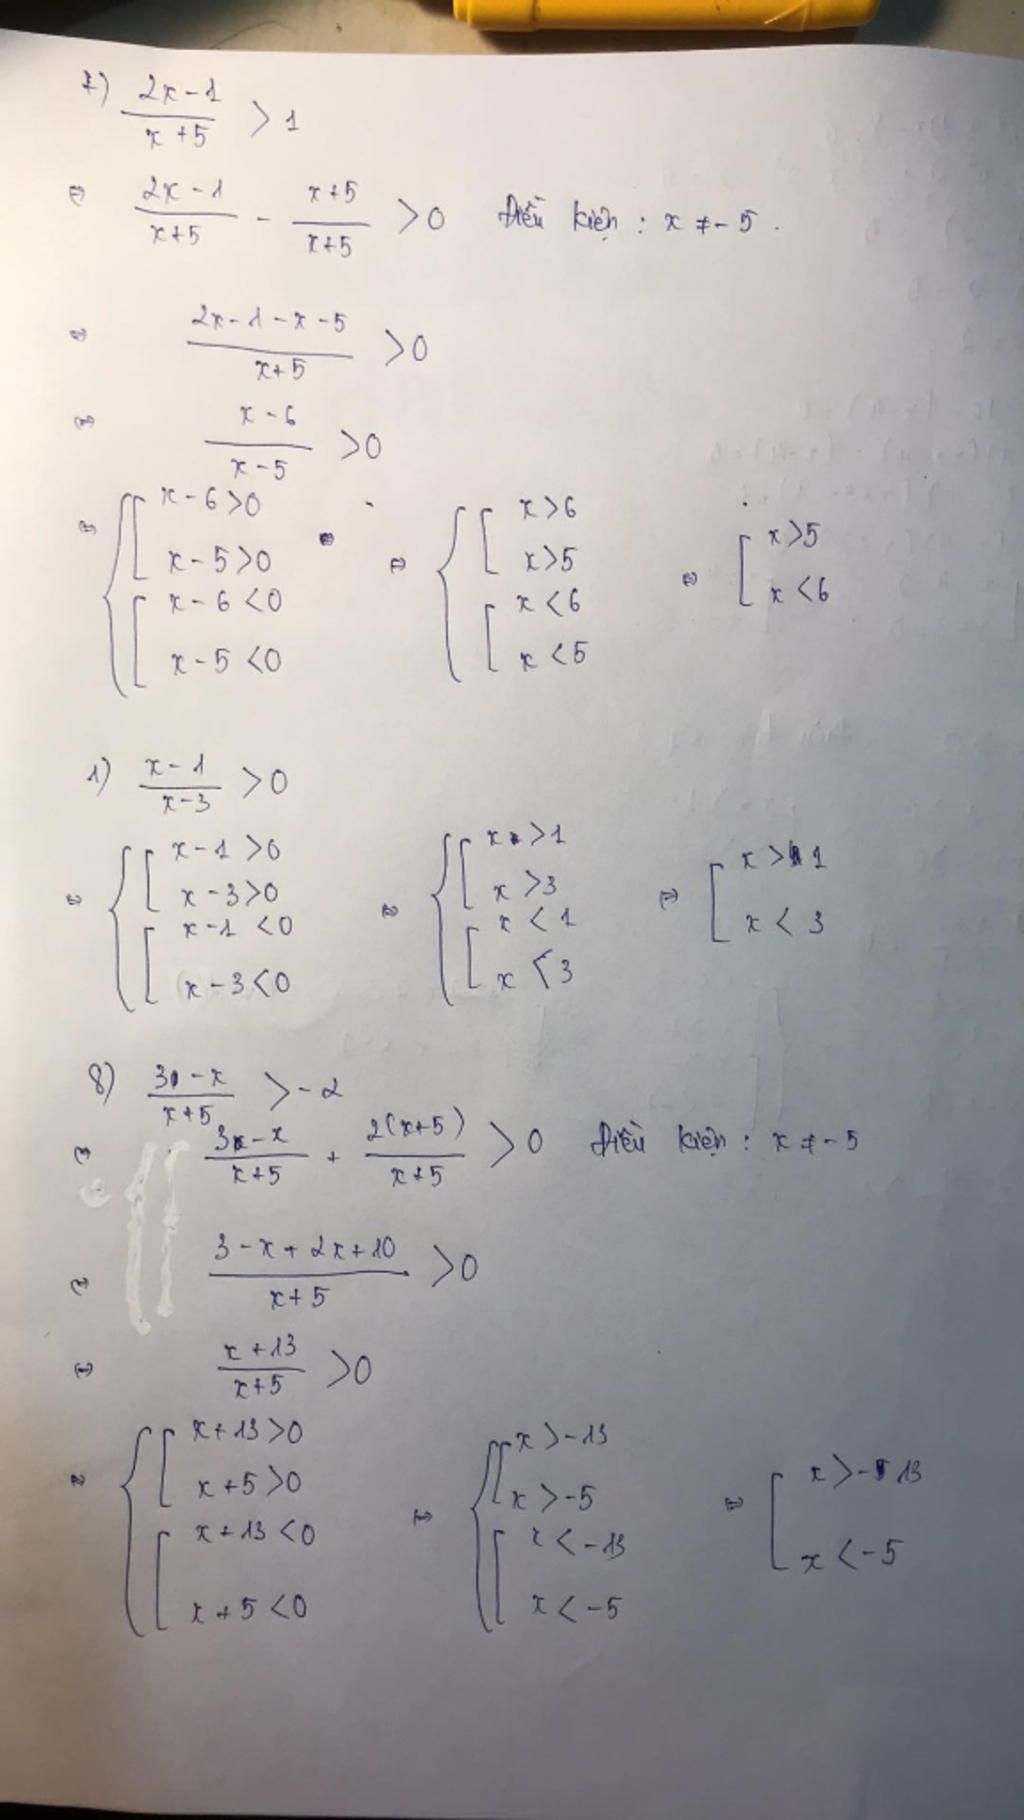 7) (2x-1)/(x+5) > 1
⇔ (2x-1)/(x+5) - (x+5)/(x+5) > 0 Điều kiện : x ≠ -5.
⇔ (2x-1-x-5)/(x+5) > 0
⇔ (x-6)/(x-5) > 0
⇔ { [ x-6>0 ⇔ { [ x>6 ⇔ [ x>5
x-5>0 x>5 x<6
[ x-6<0 [ x<6
x-5<0 x<5
1) (x-1)/(x-3) > 0
⇔ { [ x-1>0 ⇔ { [ x>1 ⇔ [ x>1
x-3>0 x>3 x<3
[ x-1<0 [ x<1
x-3<0 x<3
8) (3-x)/(x+5) > -2
⇔ (3-x)/(x+5) + 2(x+5)/(x+5) > 0 Điều kiện : x ≠ -5
⇔ (3-x+2x+10)/(x+5) > 0
⇔ (x+13)/(x+5) > 0
⇔ { [ x+13>0 ⇔ { [ x>-13 ⇔ [ x>-13
x+5>0 x>-5 x<-5
[ x+13<0 [ x<-13
x+5<0 x<-5